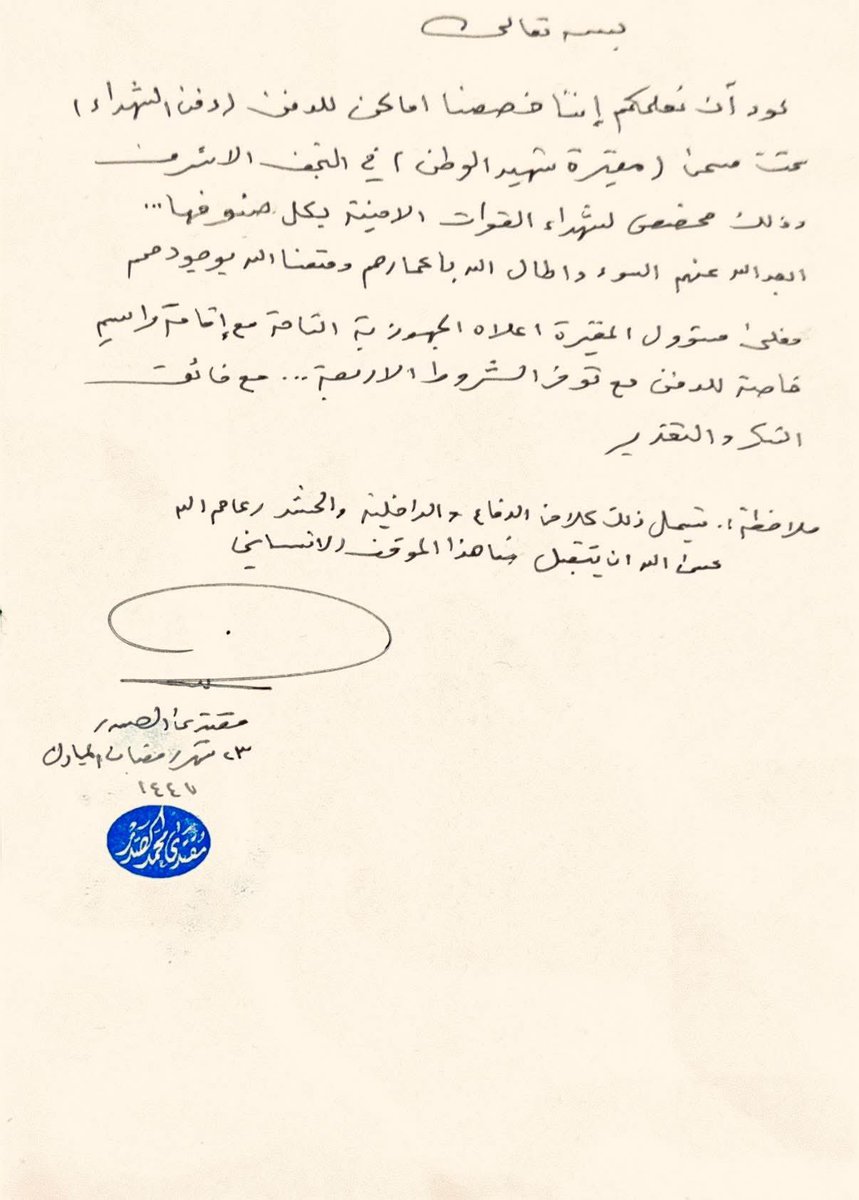 بسمه تعالى
نود أن نعلمكم إننا خصصنا اماكن للدفن (دفن الشهداء)
تحت مسمى (مقبرة شهيد الوطن) في النجف الاشرف
وذلك مخصص لشهداء القوات الامنية بكل صنوفها...
ابعد الله عنهم السوء واطال الله باعمارهم ومتعنا الله بوجودهم
فعلى مسؤول المقبرة اعلاه الجهوزية التامة مع إقامة مراسيم
خاصة للدفن مع توفر الشروط الاربعة... مع فائق
الشكر والتقدير
ملاحظة: يشمل ذلك كلا من الدفاع والداخلية والحشد رعاهم الله
عسى الله ان يتقبل منا هذا الموقف الانساني
مقتدى الصدر
٢٣ شهر رمضان المبارك
١٤٤٧
مقتدى محمد الصدر